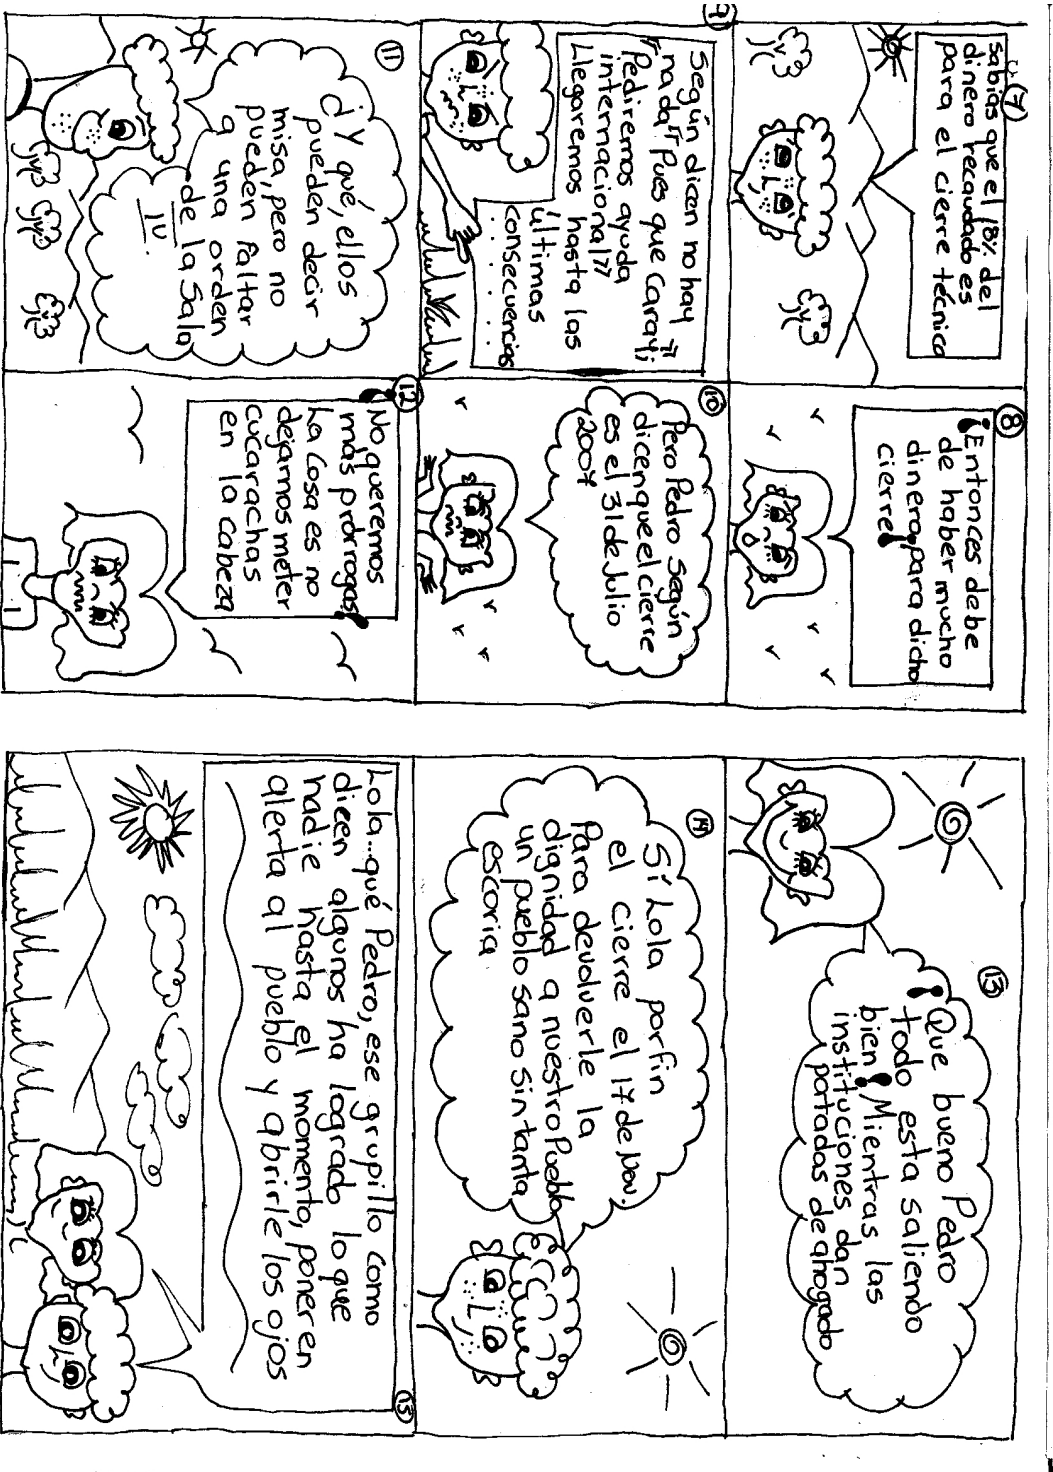 7
sabías que el 18% del
dinero recaudado es
para el cierre técnico
8
¡Entonces debe
de haber mucho
dinero para dicho
cierre!
9
Según dicen no hay
nada "Pues que caray"
"Pediremos ayuda
internacional"
Llegaremos hasta las
últimas
consecuencias
10
Pero Pedro Según
dicen que el cierre
es el 31 de Julio
2007
11
¿Y qué, ellos
pueden decir
misa, pero no
pueden faltar
a una orden
de la Sala
IV
12
¡No queremos
más prórrogas!
La Cosa es no
dejarnos meter
cucarachas
en la cabeza
13
¡Que bueno Pedro
todo esta saliendo
bien! Mientras las
instituciones dan
patadas de ahogado
14
Sí Lola por fin
el cierre el 17 de Nov.
Para devolverle la
dignidad a nuestro Pueblo
un pueblo sano sin tanta
escoria
15
Lola...qué Pedro, ese grupillo como
dicen algunos ha logrado lo que
nadie hasta el momento, poner en
alerta al pueblo y abrirle los ojos